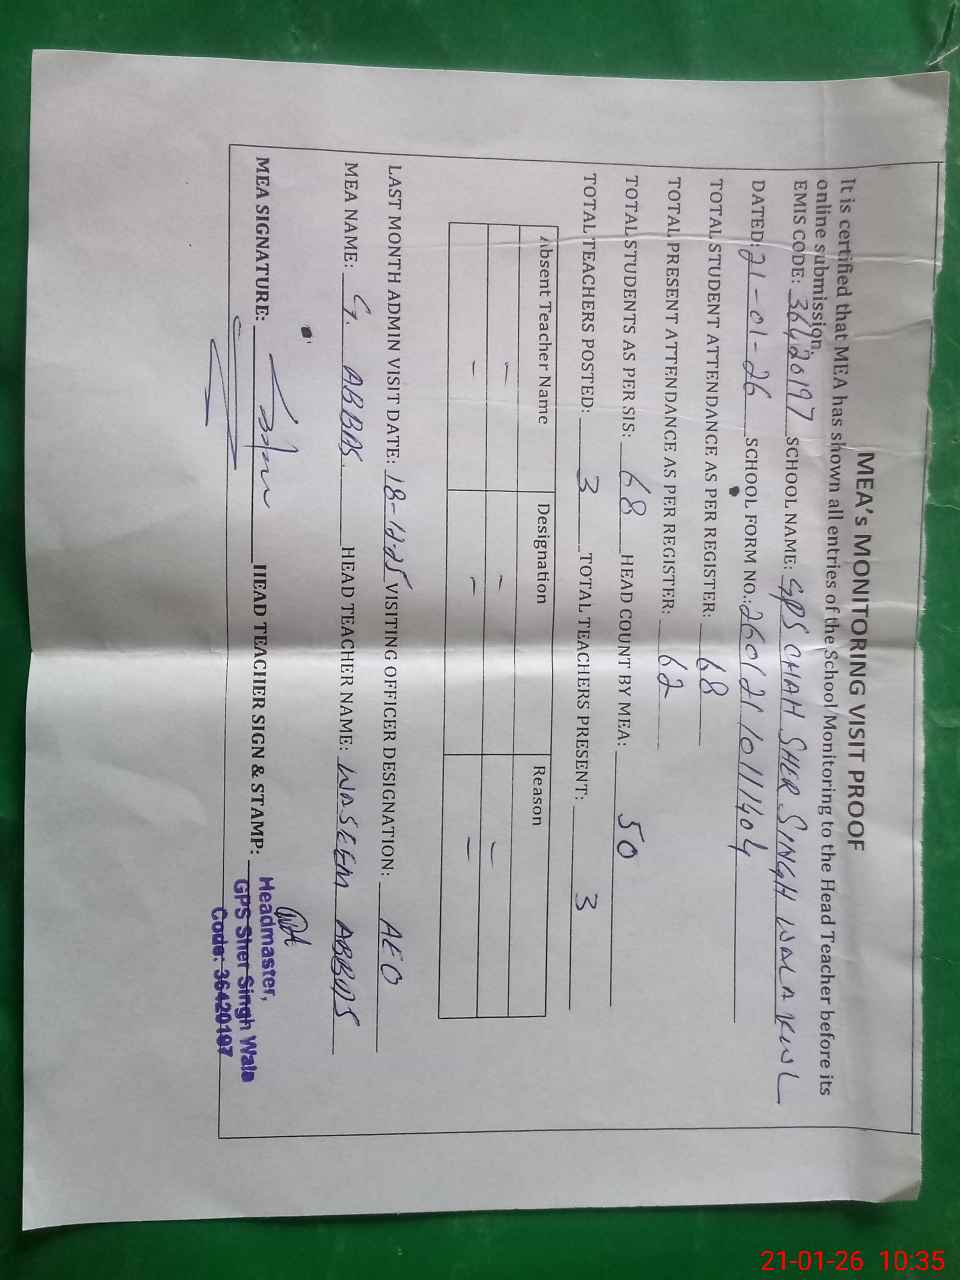 MEA's MONITORING VISIT PROOF
It is certified that MEA has shown all entries of the School Monitoring to the Head Teacher before its
online submission.
EMIS CODE: 36420197 SCHOOL NAME: GPS CHAH SHER SINGH WALA KWL
DATED: 21-01-26 SCHOOL FORM NO.: 26012110111404
TOTAL STUDENT ATTENDANCE AS PER REGISTER: 68
TOTAL PRESENT ATTENDANCE AS PER REGISTER: 62
TOTAL STUDENTS AS PER SIS: 68 HEAD COUNT BY MEA: 50
TOTAL TEACHERS POSTED: 3 TOTAL TEACHERS PRESENT: 3
Absent Teacher Name Designation Reason
- - -
- - -
LAST MONTH ADMIN VISIT DATE: 18-12-25 VISITING OFFICER DESIGNATION: AEO
MEA NAME: G. ABBAS HEAD TEACHER NAME: WASEEM ABBAS
MEA SIGNATURE: HEAD TEACHER SIGN & STAMP:
Headmaster,
GPS Sher Singh Wala
Code: 36420197
21-01-26 10:35